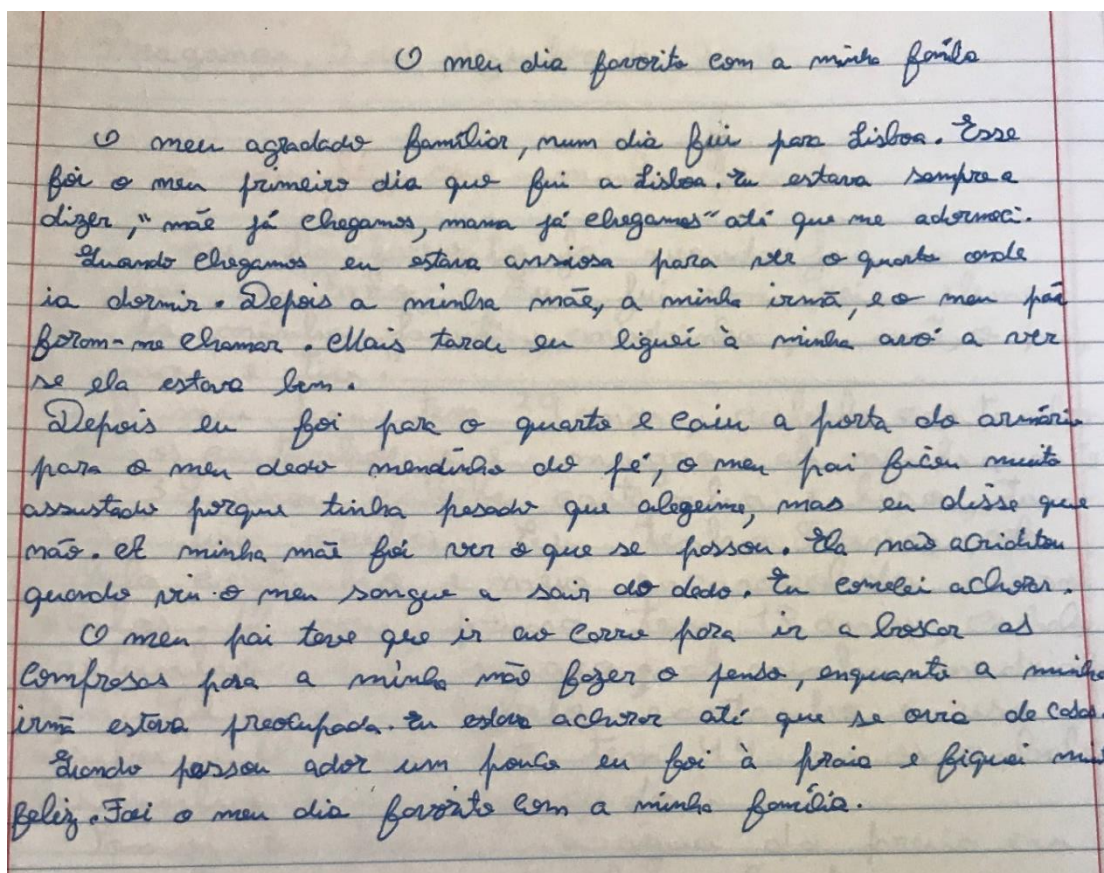 O meu dia favorito com a minha famila
O meu agradado familiar, num dia fui para Lisboa. Esse
foi o meu primeiro dia que fui a Lisboa. Eu estava sempre a
dizer, "mãe já chegamos, mama já chegamos" até que me adormeci.
Quando chegamos eu estava ansiosa para ver o quarto onde
ia dormir. Depois a minha mãe, a minha irmã, e o meu pai
forom-me chamar. Mais tarde eu liguei à minha avó a ver
se ela estava bem.
Depois eu foi para o quarto e caiu a porta do armário
para o meu dedo mendinho do pé, o meu pai ficou muito
assustado porque tinha pesado que alegeime, mas eu disse que
não. A minha mãe foi ver o que se passou. Ela não acriditou
quando viu o meu sangue a sair do dedo. Eu comecei achorar.
O meu pai teve que ir ao carro para ir a boscar as
compresas para a minha mãe fazer o penso, enquanto a minha
irmã estava preocupada. Eu estava achorar até que se ovia de casa.
Quando passou ador um pouco eu foi à praia e fiquei
feliz. Foi o meu dia favorito com a minha família.